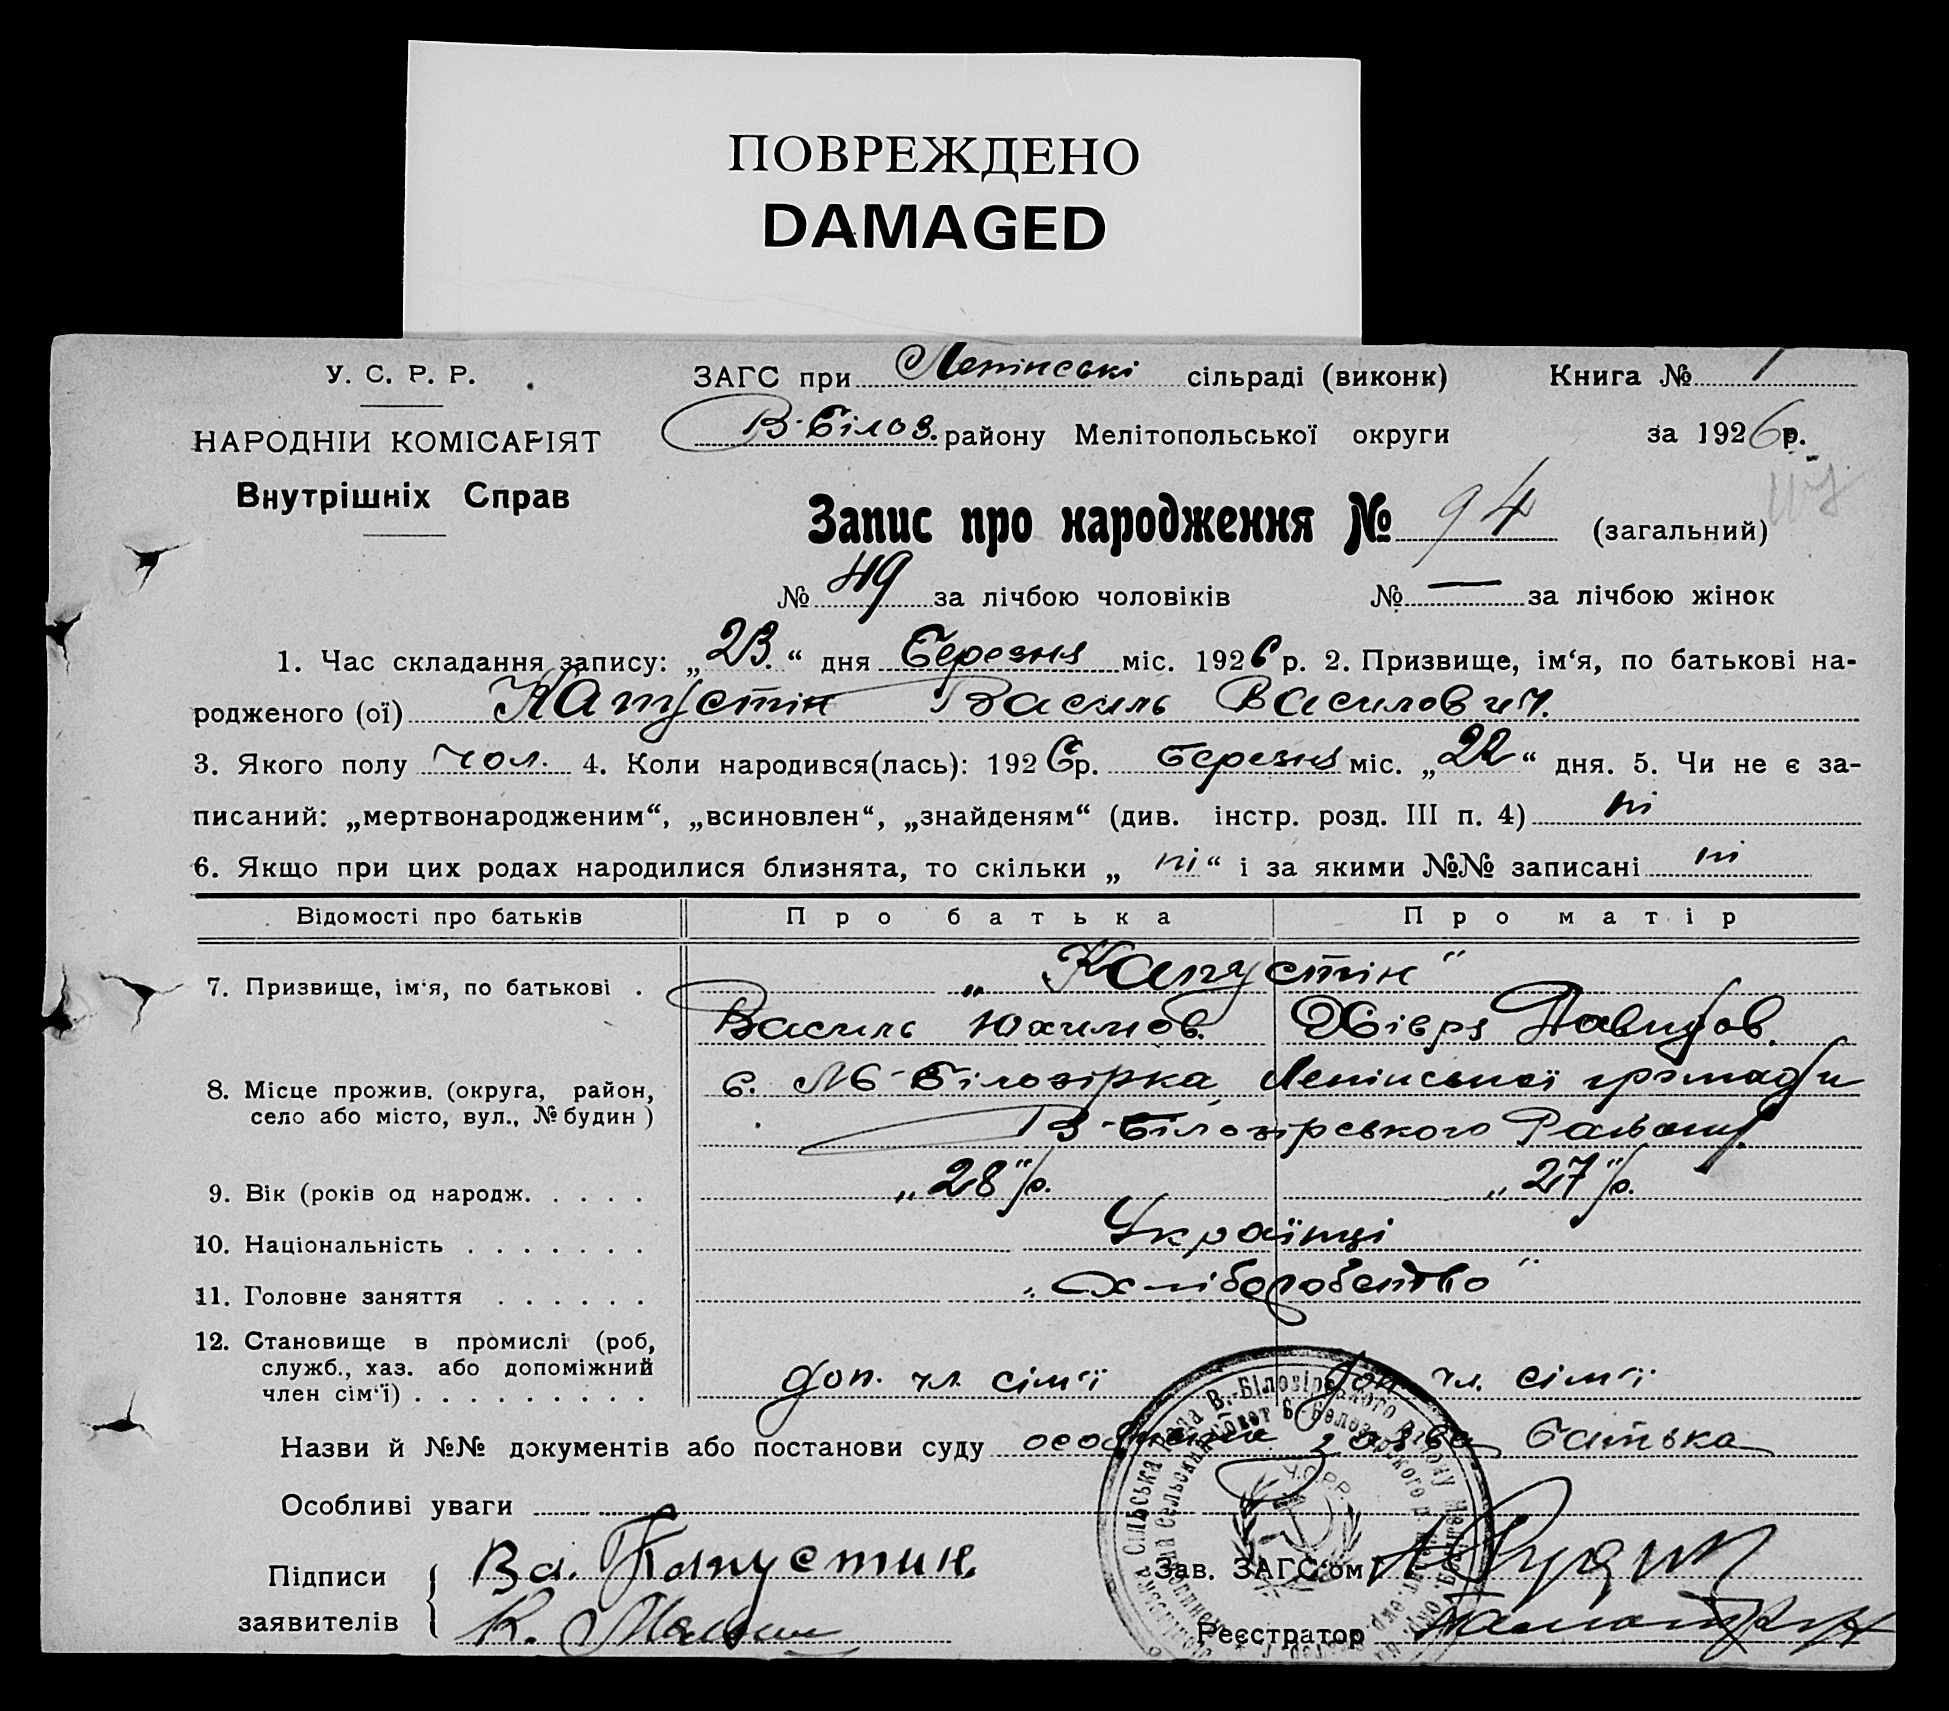 ПОВРЕЖДЕНО
DAMAGED
У. С. Р. Р.
ЗАГС при Ленінські сільраді (виконк) Книга № 1
НАРОДНІЙ КОМІСАРІЯТ
В-Білоз. району Мелітопольської округи за 1926 р.
Внутрішніх Справ
Запис про народження № 94 (загальний)
№ 49 за лічбою чоловіків № — за лічбою жінок
1. Час складання запису: „23.“ дня Березня міс. 1926 р. 2. Призвище, ім‘я, по батькові на-
родженого (ої) Капустін Василь Василович.
3. Якого полу чол. 4. Коли народився(лась): 1926 р. березня міс. „22“ дня. 5. Чи не є за-
писаний: „мертвонародженим“, „всиновлен“, „знайденям“ (див. інстр. розд. III п. 4) ні
6. Якщо при цих родах народилися близнята, то скільки „ ні “ і за якими №№ записані ні
Відомості про батьків Про батька Про матір
7. Призвище, ім‘я, по батькові . „Капустін“
Василь Юхимов. Хівря Давидов.
8. Місце прожив. (округа, район, с. М-Білозірка, Ленінської громади
село або місто, вул., № будин ) В-Білозірського Району
9. Вік (років од народж. . . . . „28“ р. „27“ р.
10. Національність . . . . . . . Українці
11. Головне заняття . . . . . . „хліборобство“
12. Становище в промислі (роб,
служб., хаз. або допоміжний
член сім‘ї) . . . . . . . . . доп. чл. сім‘ї доп. чл. сім‘ї
Назви й №№ документів або постанови суду особиста заява батька
Особливі уваги
У.С.Р.Р.
Підписи Ва. Капустин. Зав. ЗАГС‘ом
заявителів К. Реєстратор